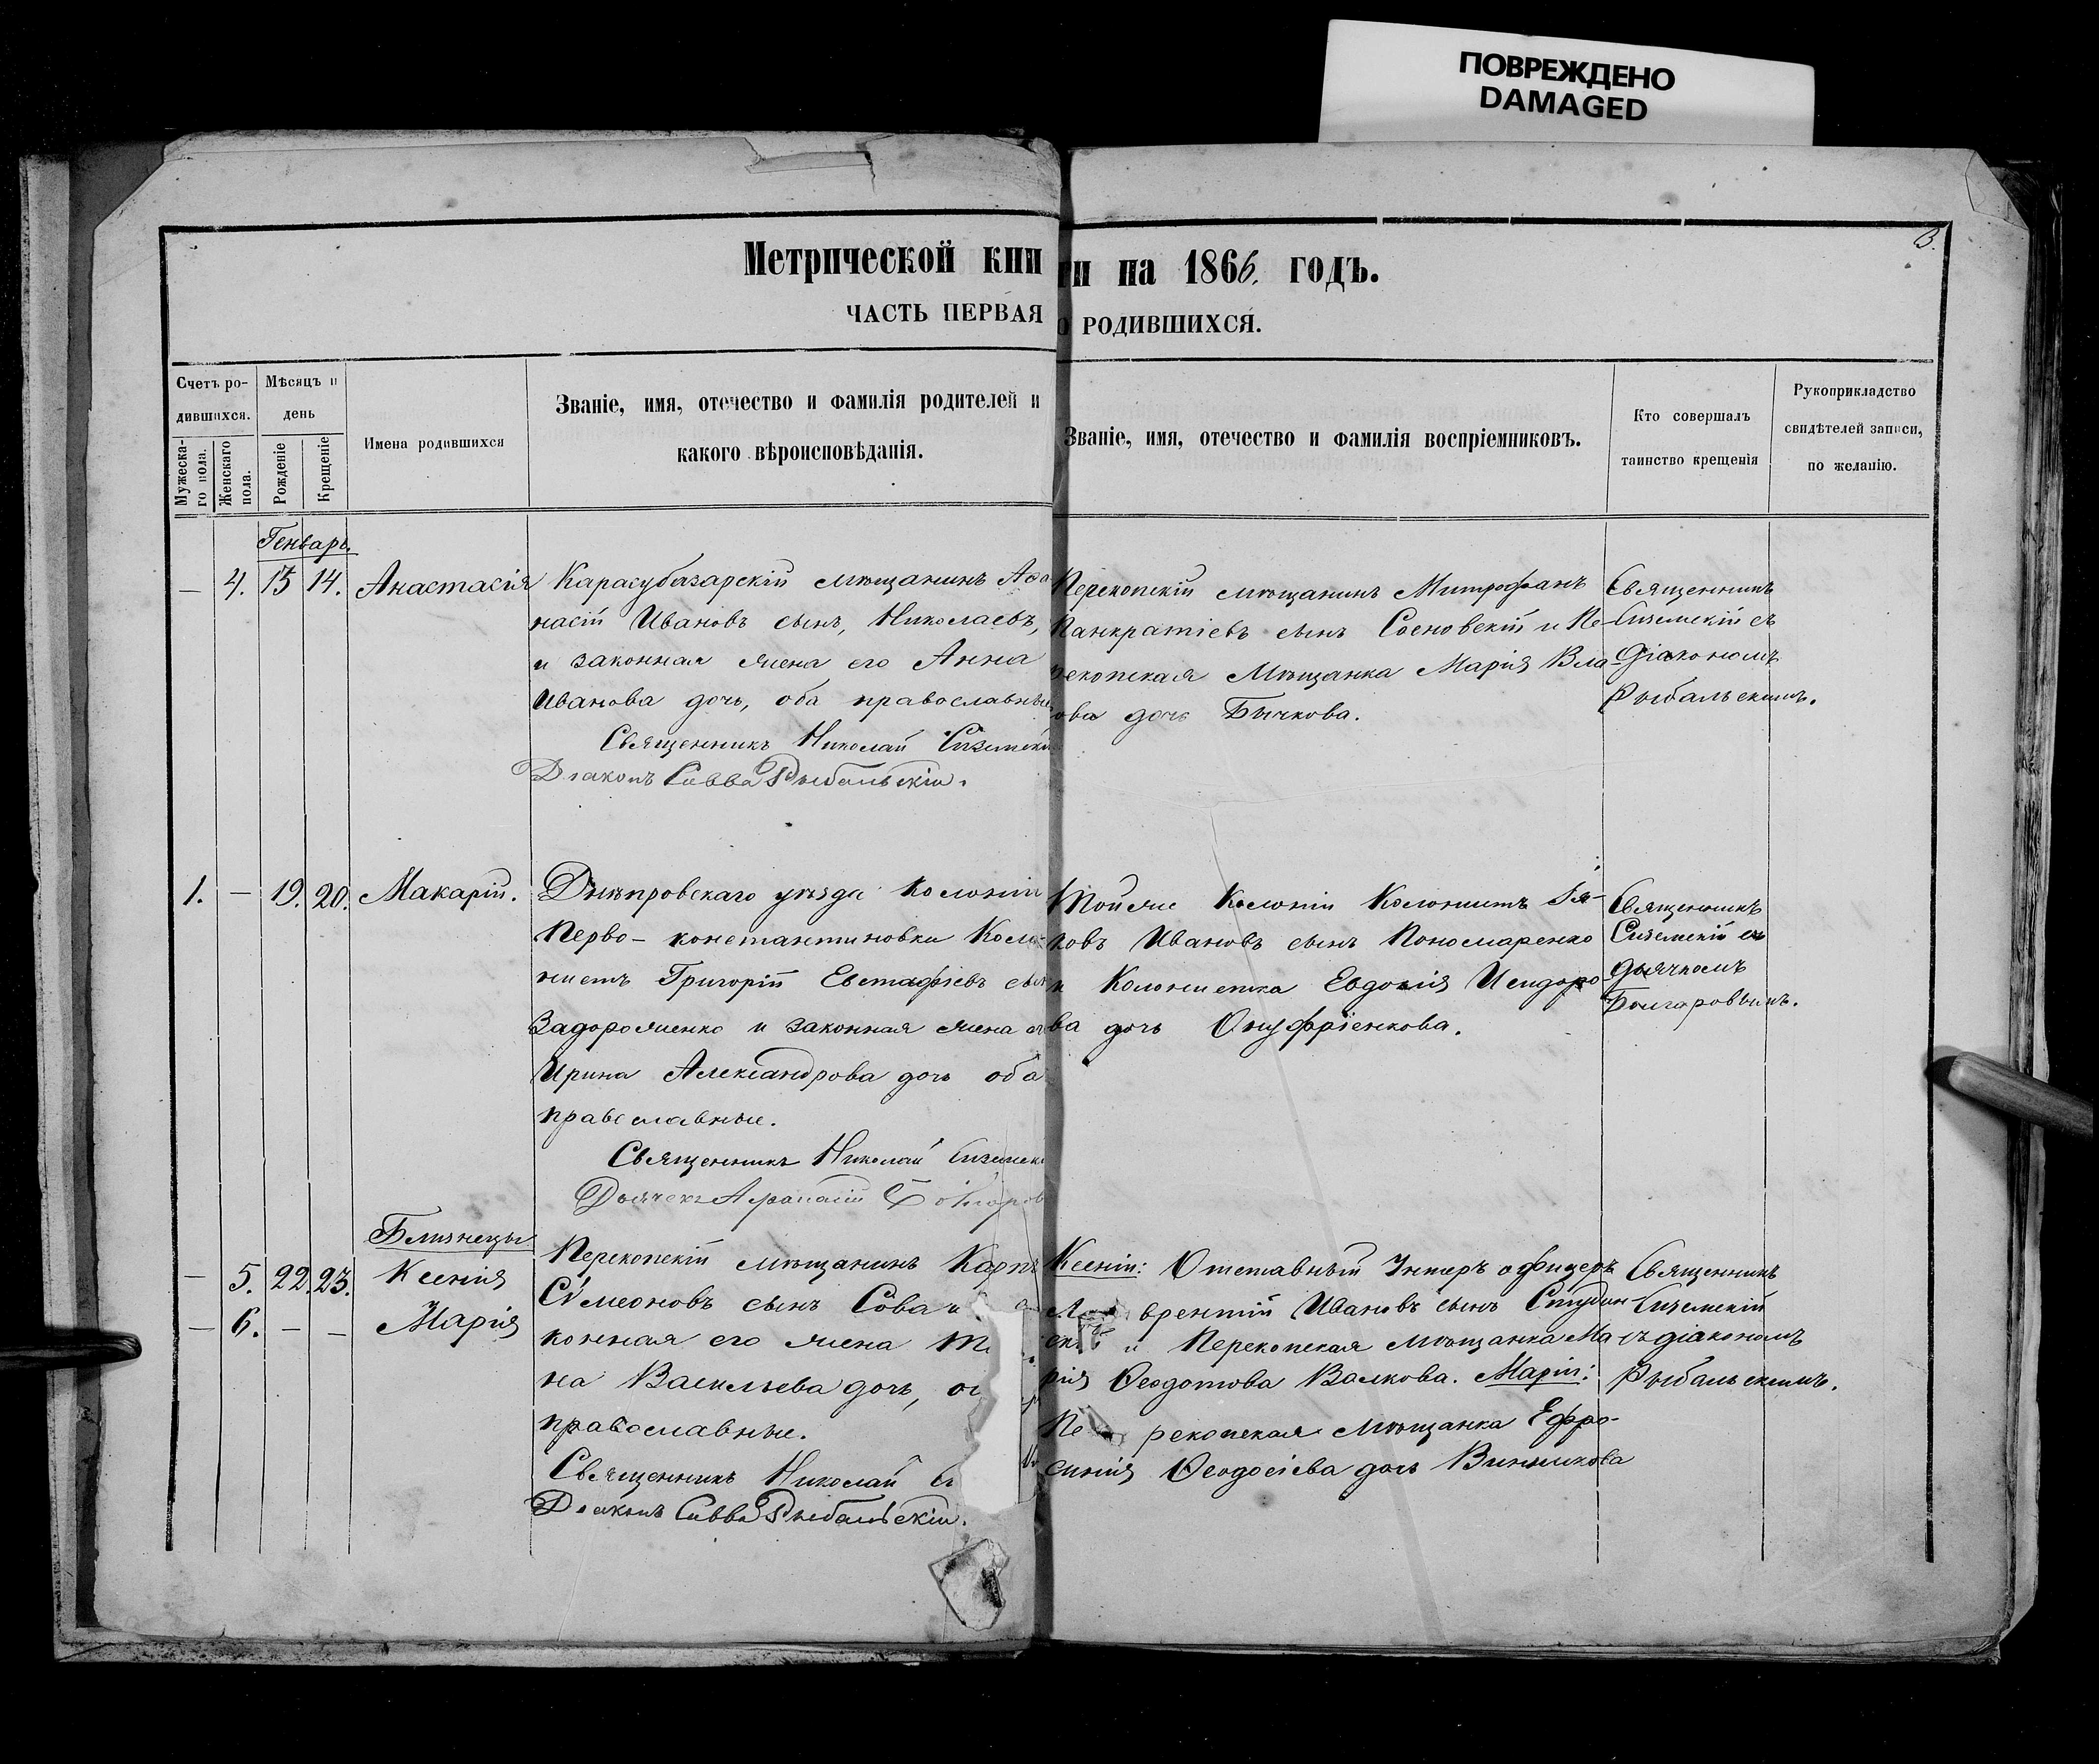 ПОВРЕЖДЕНО
DAMAGED
3.
Метрической книги на 1866. годъ.
ЧАСТЬ ПЕРВАЯ О РОДИВШИХСЯ.
Счетъ ро-
дившихся.
Мужеска-
го пола.
Женскаго
пола.
Мѣсяцъ и
день
Рожденіе
Крещеніе
Имена родившихся
Званіе, имя, отечество и фамилія родителей и
какого вѣроисповѣданія.
Званіе, имя, отечество и фамилія воспріемниковъ.
Кто совершалъ
таинство крещенія
Рукоприкладство
свидѣтелей записи,
по желанію.
Генварь.
— 4. 13 14. Анастасія
Карасубазарскій мѣщанинъ Афа
насій Ивановъ сынъ, Николаевъ,
и законная жена его Анна
Иванова дочь, оба православные
Священникъ Николай
Діаконъ Савва Рыбальскій.
Перекопскій мѣщанинъ Митрофанъ
Панкратіевъ сынъ Сосновскій и Пе-
рекопская Мѣщанка Марія Вла-
ова дочь Бычкова.
Священникъ
Сиземскій съ
Діакономъ
Рыбальскимъ.
1. — 19. 20. Макарій.
Днѣпровскаго уѣзда Колоніи
Перво-константиновки Коло-
нистъ Григорій Евстафіевъ сынъ
Задорожненко и законная жена его
Ирина Александрова дочь оба
православные.
Священникъ Николай
Дьячекъ Афанасій Болгаров
Тойже Колоніи Колонистъ Ія-
ковъ Ивановъ сынъ Пономаренко
и Колонистка Евдокія Исидоро-
ва дочь Онуфріенкова.
Священникъ
Сиземскій съ
Дьячкомъ
Болгаровымъ.
Близнецы
— 5. 22. 23. Ксенія
— 6. — — Марія
Перекопскій мѣщанинъ Карпъ
Сѵмеоновъ сынъ
конная его жена
на Васильева дочь,
православные.
Священникъ Николай
Діаконъ Савва Рыбальскій.
Ксеніи: Отставный Унтеръ офицеръ
Лаврентій Ивановъ сынъ Студин-
скій и Перекопская мѣщанка Ма-
рія Ѳеодотова Валкова. Маріи:
Перекопская мѣщанка Ефро-
синія Ѳеодосіева дочь Винникова
Священникъ
Сиземскій
съ діакономъ
Рыбальскимъ.